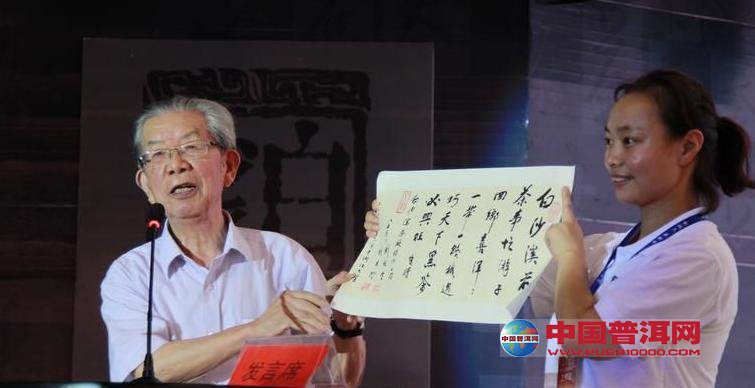 白沙溪前
茶事忙游子
回鄉喜洋〻
一帶一路機遇
巧天下黑茶
必興旺
发言席
中国普洱网
www.PUER10000.com